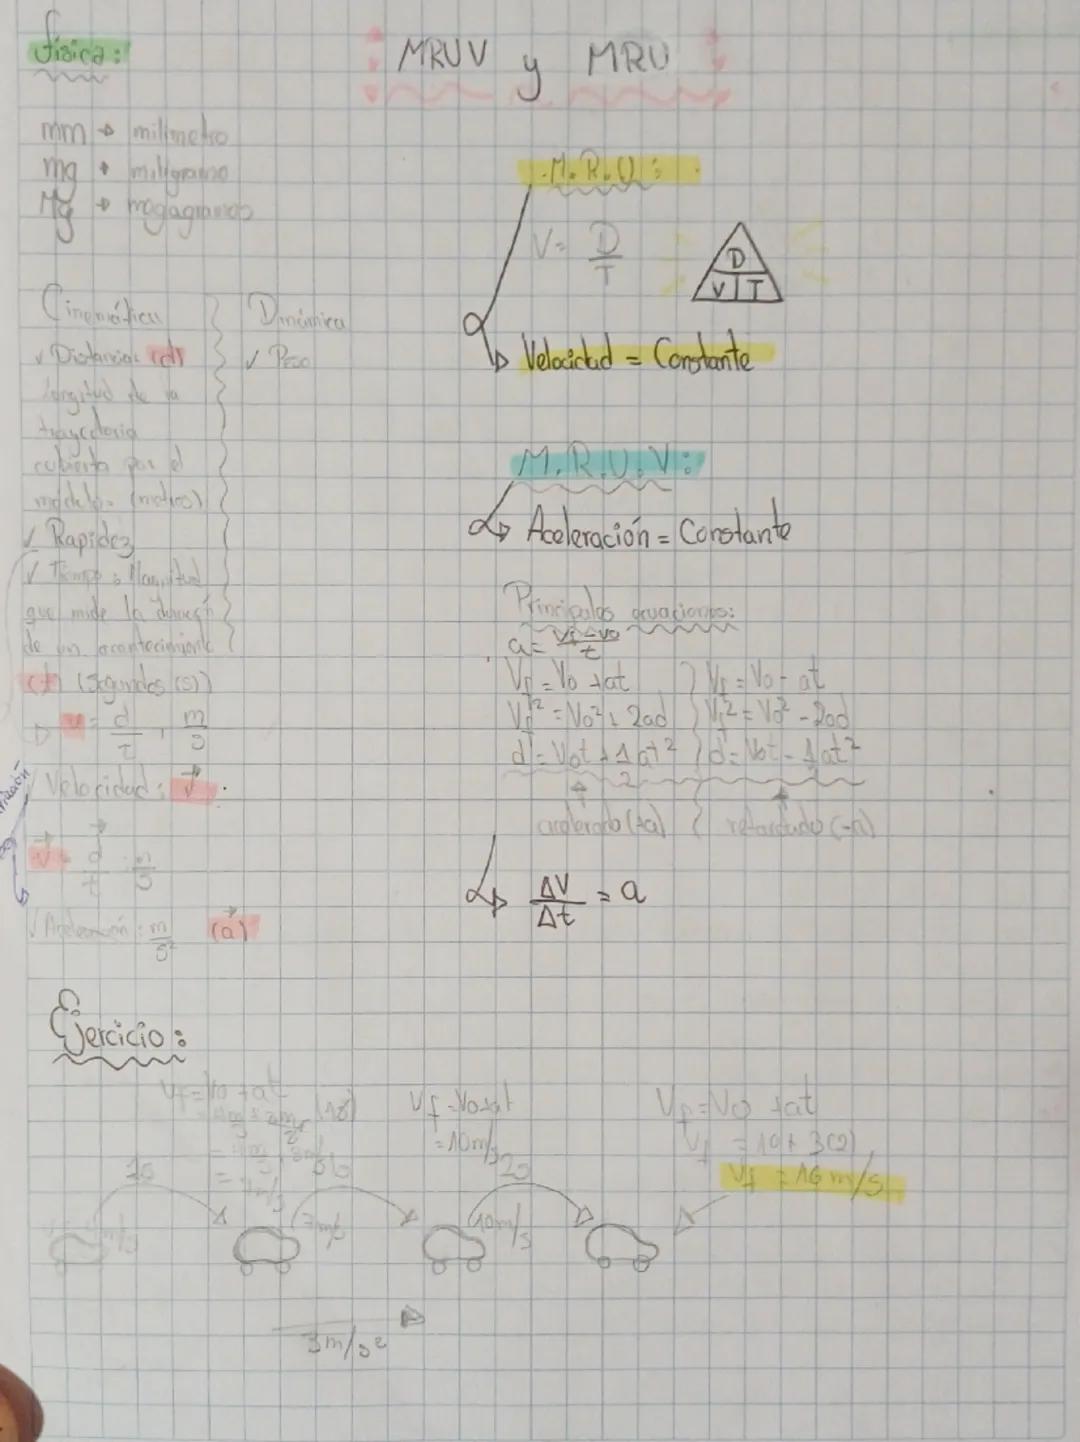 física:
MRUV y MRU
mm → milímetro
mg → miligramo
Mg → megagramos
Cinemática
✓ Distancia: (d)
longitud de la
trayectoria
cubierta por el
(metros)
✓ Rapidez
✓ Tiempo: Magnitud
que mide la duración
de un acontecimiento
(t) (segundos (s))
v = d/t, m/s
Velocidad: v⃗.
v⃗ = d⃗/t : m/s
✓ Aceleración: m/s² (a⃗)
Dinámica
✓ Peso
M.R.U:
V = D/T
D
V T
Velocidad = Constante
M.R.U.V:
Aceleración = Constante
Principales ecuaciones:
a = Vf - Vo/t
Vf = Vo + at
Vf² = Vo² + 2ad
d = Vot + 1/2 at²
acelerado (+a)
Vf = Vo - at
Vf² = Vo² - 2ad
d = Vot - 1/2 at²
retardado (-a)
ΔV/Δt = a
Ejercicio:
Vf = Vo + at
Vf = Vo + at
= 10m/s
Vf = Vo + at
Vf = 10 + 3(2)
Vf = 16 m/s
1s
2s
7m/s
10m/s
3m/s²